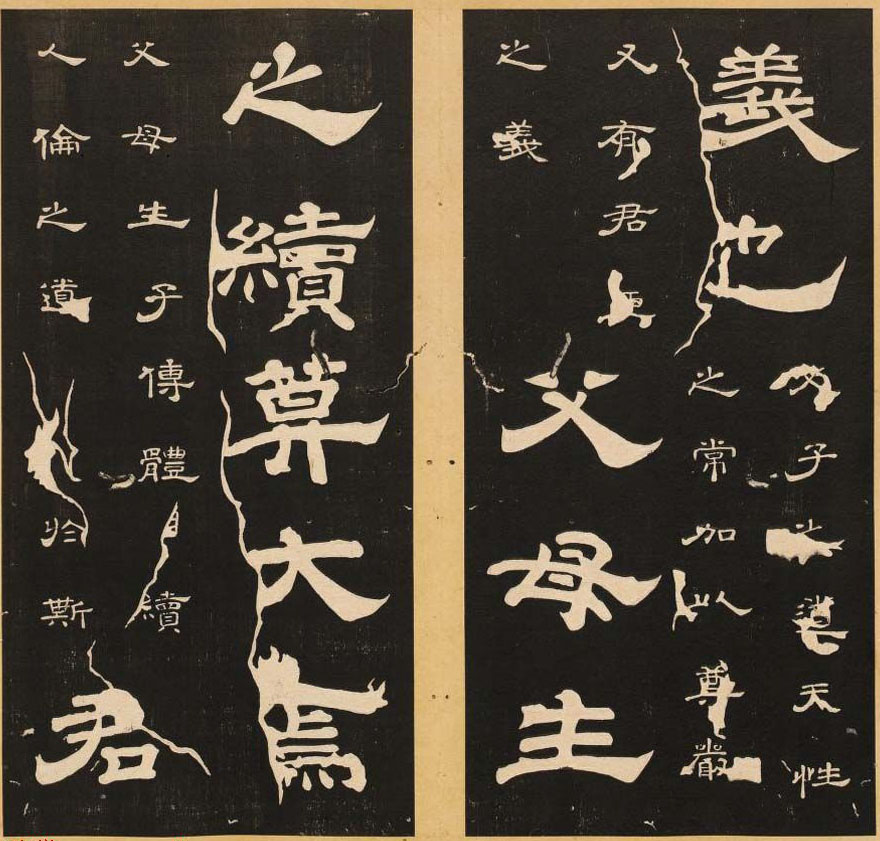 義也
父子之道天性
之常加以尊嚴
又有君臣
之義
父母生
之續莫大焉
父母生子傳體相續
人倫之道於斯
君